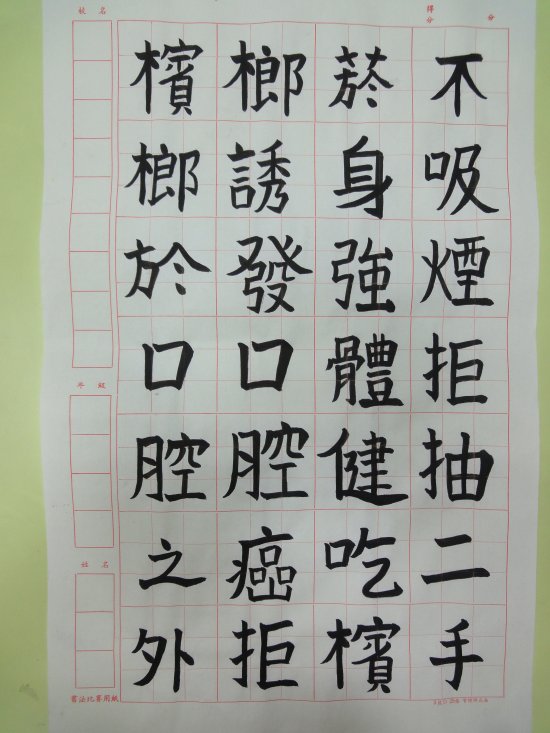 不吸煙拒抽二手
菸身強體健吃檳
榔誘發口腔癌拒
檳榔於口腔之外
校名
年級
姓名
得分
分
書法比賽用紙